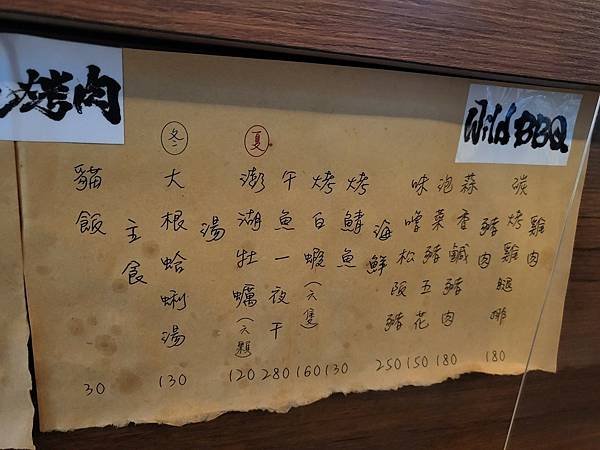 烤肉
Wild BBQ
雞肉
炭烤雞腿排 180
豬肉
蒜香鹹豬肉 180
泡菜豬五花 150
味噌松阪豬 250
海鮮
烤鯖魚 130
烤白蝦(六隻) 160
午魚一夜干 280
夏
澎湖牡蠣(六顆) 120
湯
冬
大根蛤蜊湯 130
主食
貓飯 30